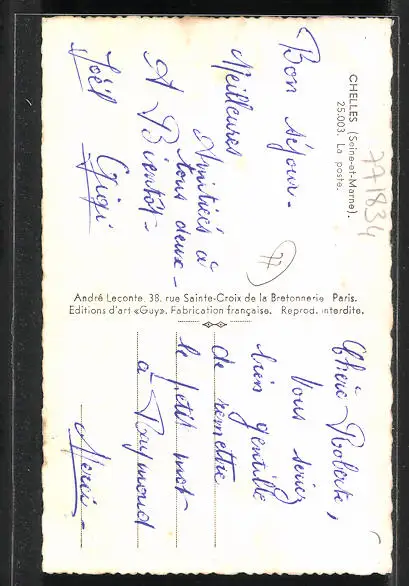 CHELLES (Seine-et-Marne).
25.003. La poste.
771834
77
Bon séjour.
Meilleures
Amitiés à
tous deux -
A Bientôt -
Joël Gigi
André Leconte, 38, rue Sainte-Croix de la Bretonnerie Paris.
Editions d'art «Guy». Fabrication française. Reprod. interdite.
Chère Roberte,
Vous seriez
bien gentille
de remettre
le petit mot
à Raymond
Merci -